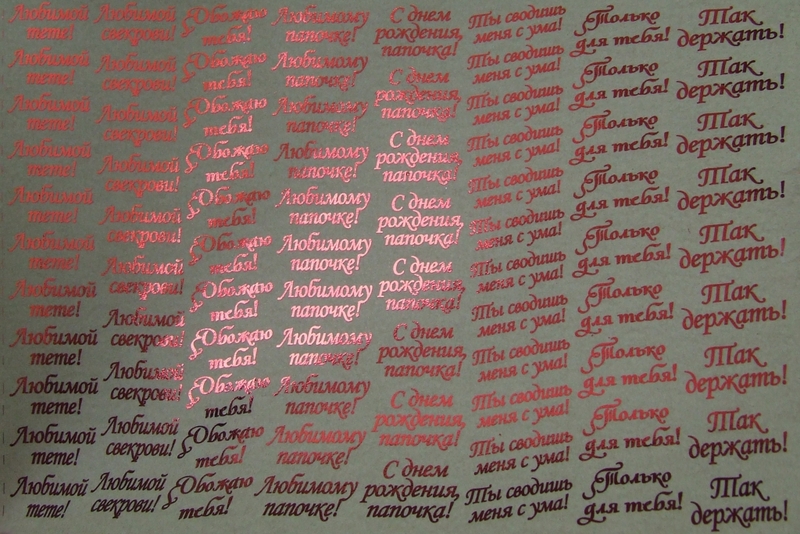 Любимой
тете!
Любимой
тете!
Любимой
тете!
Любимой
тете!
Любимой
тете!
Любимой
тете!
Любимой
тете!
Любимой
тете!
Любимой
тете!
Любимой
тете!
Любимой
тете!
Любимой
свекрови!
Любимой
свекрови!
Любимой
свекрови!
Любимой
свекрови!
Любимой
свекрови!
Любимой
свекрови!
Любимой
свекрови!
Любимой
свекрови!
Любимой
свекрови!
Любимой
свекрови!
Обожаю
тебя!
Обожаю
тебя!
Обожаю
тебя!
Обожаю
тебя!
Обожаю
тебя!
Обожаю
тебя!
Обожаю
тебя!
Обожаю
тебя!
Обожаю
тебя!
Обожаю
тебя!
Обожаю
тебя!
Любимому
папочке!
Любимому
папочке!
Любимому
папочке!
Любимому
папочке!
Любимому
папочке!
Любимому
папочке!
Любимому
папочке!
Любимому
папочке!
Любимому
папочке!
Любимому
папочке!
Любимому
папочке!
С днем
рождения,
папочка!
С днем
рождения,
папочка!
С днем
рождения,
папочка!
С днем
рождения,
папочка!
С днем
рождения,
папочка!
С днем
рождения,
папочка!
С днем
рождения,
папочка!
С днем
рождения,
папочка!
Ты сводишь
меня с ума!
Ты сводишь
меня с ума!
Ты сводишь
меня с ума!
Ты сводишь
меня с ума!
Ты сводишь
меня с ума!
Ты сводишь
меня с ума!
Ты сводишь
меня с ума!
Ты сводишь
меня с ума!
Ты сводишь
меня с ума!
Ты сводишь
меня с ума!
Ты сводишь
меня с ума!
Ты сводишь
меня с ума!
Только
для тебя!
Только
для тебя!
Только
для тебя!
Только
для тебя!
Только
для тебя!
Только
для тебя!
Только
для тебя!
Только
для тебя!
Только
для тебя!
Так
держать!
Так
держать!
Так
держать!
Так
держать!
Так
держать!
Так
держать!
Так
держать!
Так
держать!
Так
держать!